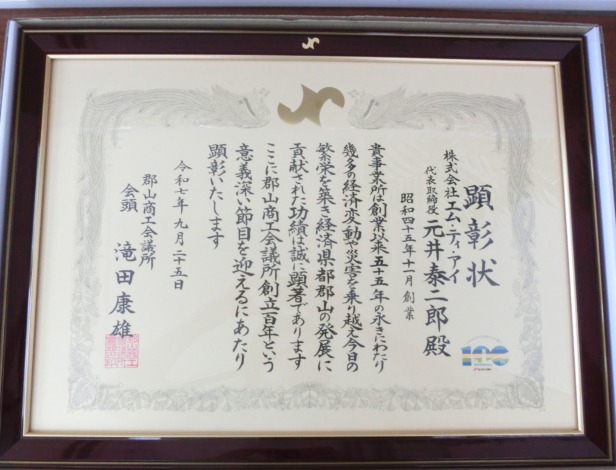 顕彰状
株式会社エム・ティ・アイ
代表取締役 元井泰二郎殿
昭和四十五年十一月創業
貴事業所は創業以来五十五年の永きにわたり
幾多の経済変動や災害を乗り越え今日の
繁栄を築き経済県都郡山の発展に
貢献された功績は誠に顕著であります
ここに郡山商工会議所創立百年という
意義深い節目を迎えるにあたり
顕彰いたします
令和七年九月二十五日
郡山商工会議所
会頭 滝田康雄
100